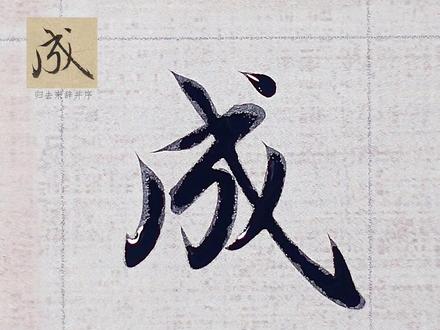 成
归去来辞并序
成